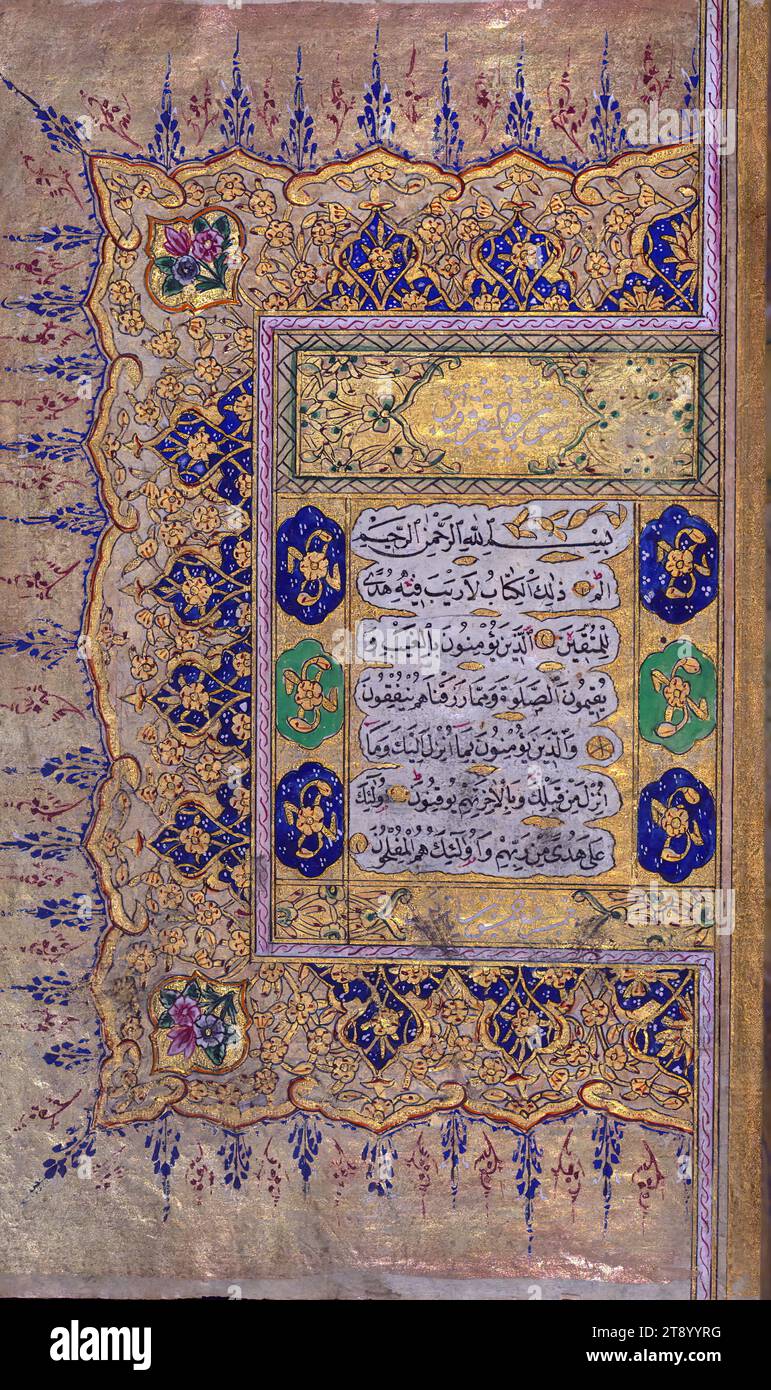 سورة البقرة
بِسْمِ اللّٰهِ الرَّحْمٰنِ الرَّحِيمِ
الم ذٰلِكَ الْكِتَابُ لَا رَيْبَ فِيهِ هُدًى
لِلْمُتَّقِينَ الَّذِينَ يُؤْمِنُونَ بِالْغَيْبِ وَ
يُقِيمُونَ الصَّلٰوةَ وَمِمَّا رَزَقْنَاهُمْ يُنْفِقُونَ
وَالَّذِينَ يُؤْمِنُونَ بِمَا اُنْزِلَ اِلَيْكَ وَمَا
اُنْزِلَ مِنْ قَبْلِكَ وَبِالْاٰخِرَةِ هُمْ يُوقِنُونَ اُولٰئِكَ
عَلٰى هُدًى مِنْ رَبِّهِمْ وَاُولٰئِكَ هُمُ الْمُفْلِحُونَ
alamy
Image ID: 2T8YYRG
www.alamy.com